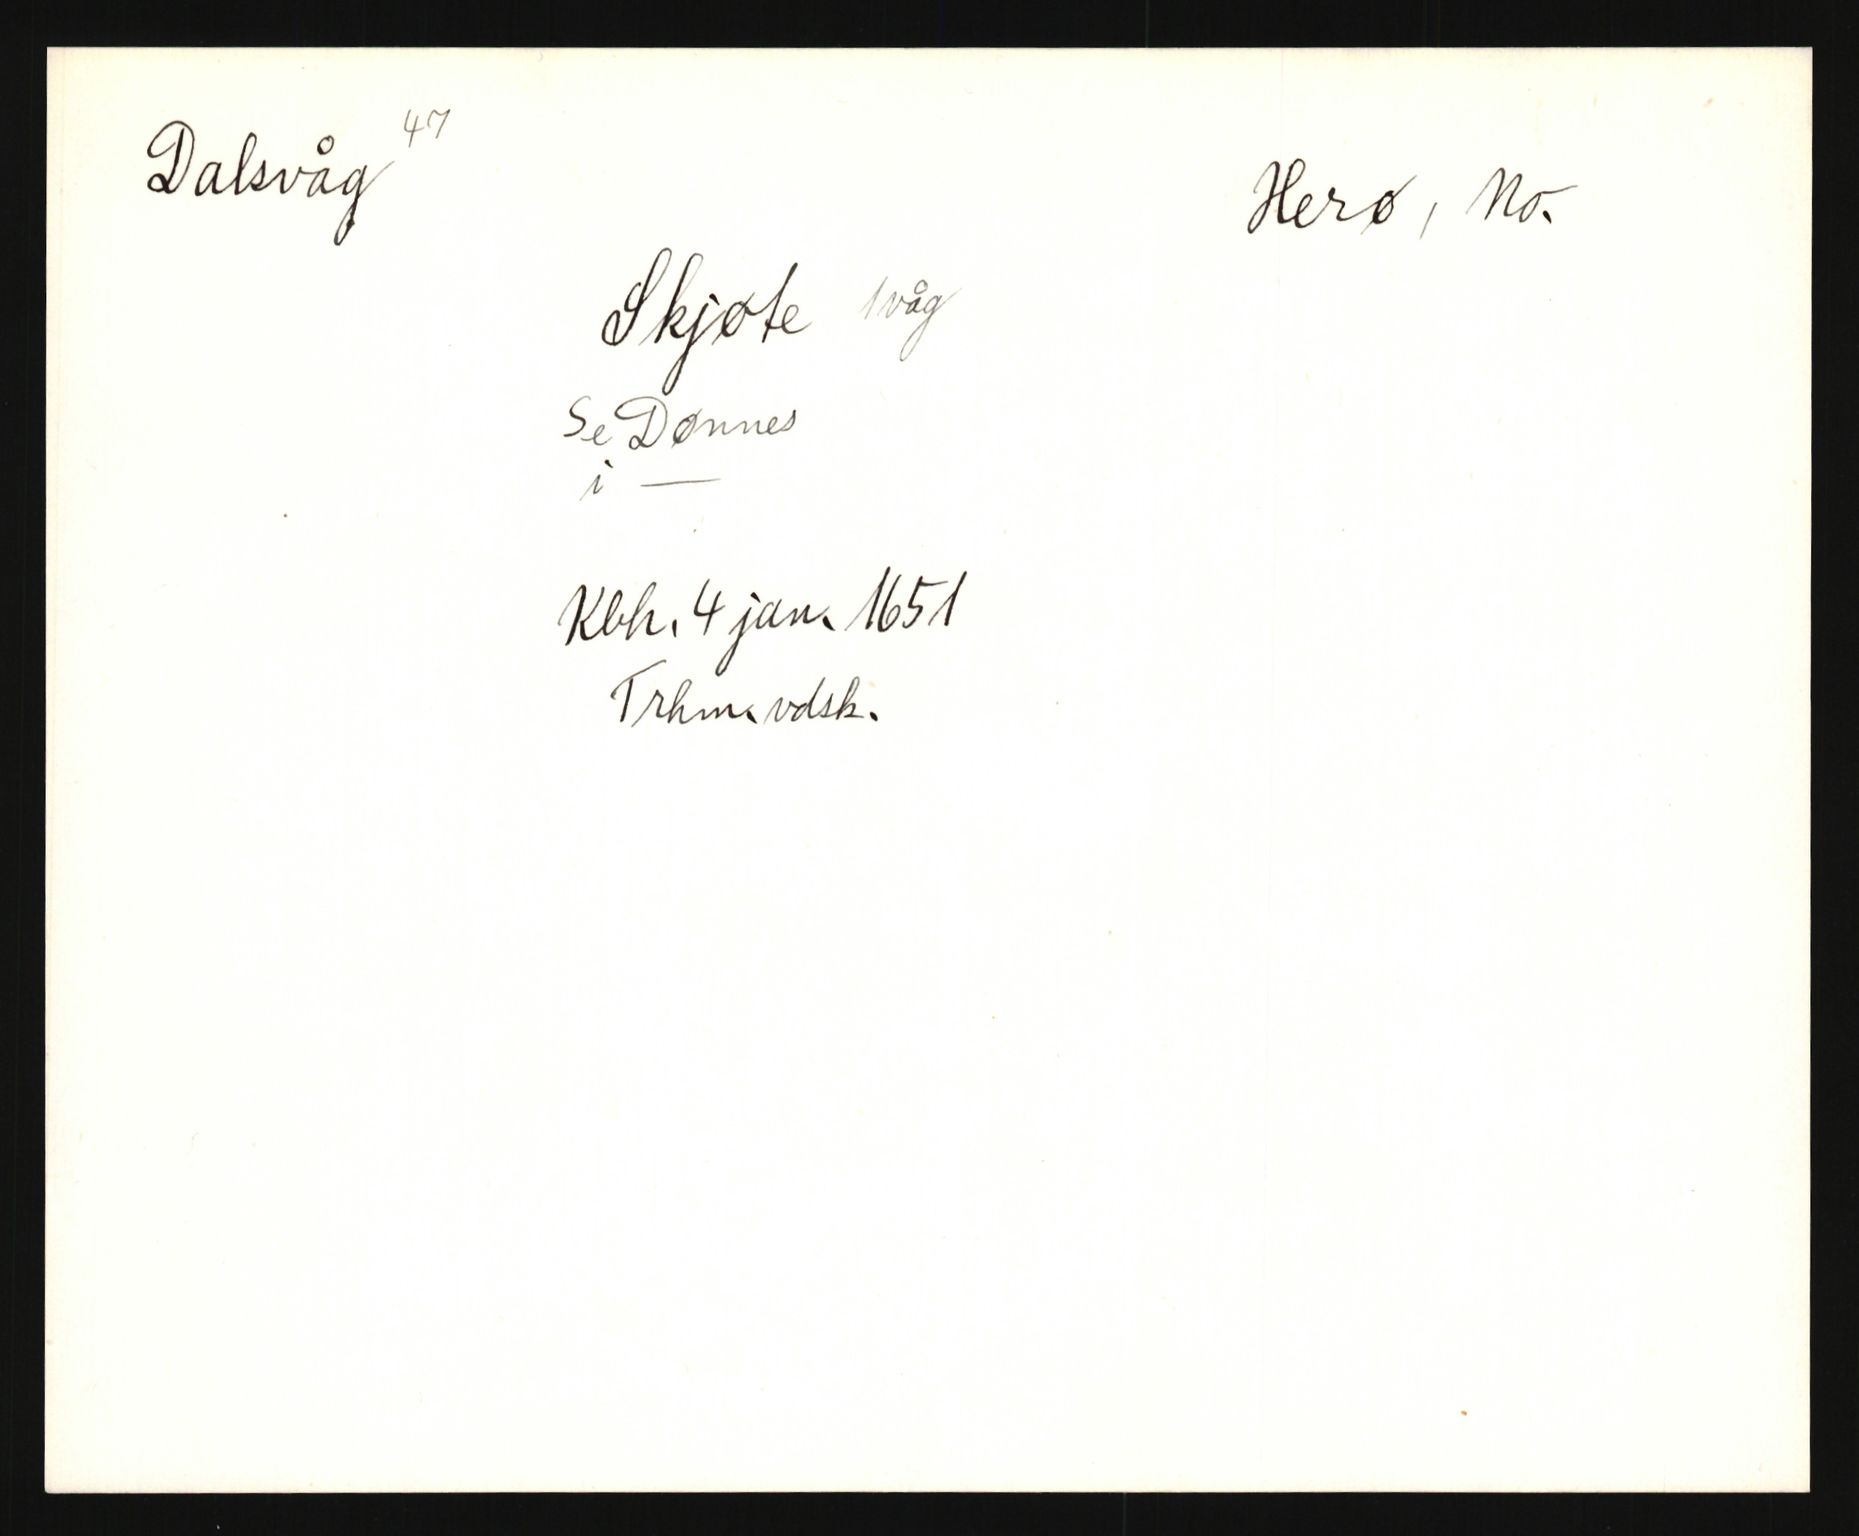 Dalsvåg 47
Herø, No.
Skjøte 1 våg
Se Dønnes
i —
Kbh. 4 jan. 1651
Trhm. vdsk.